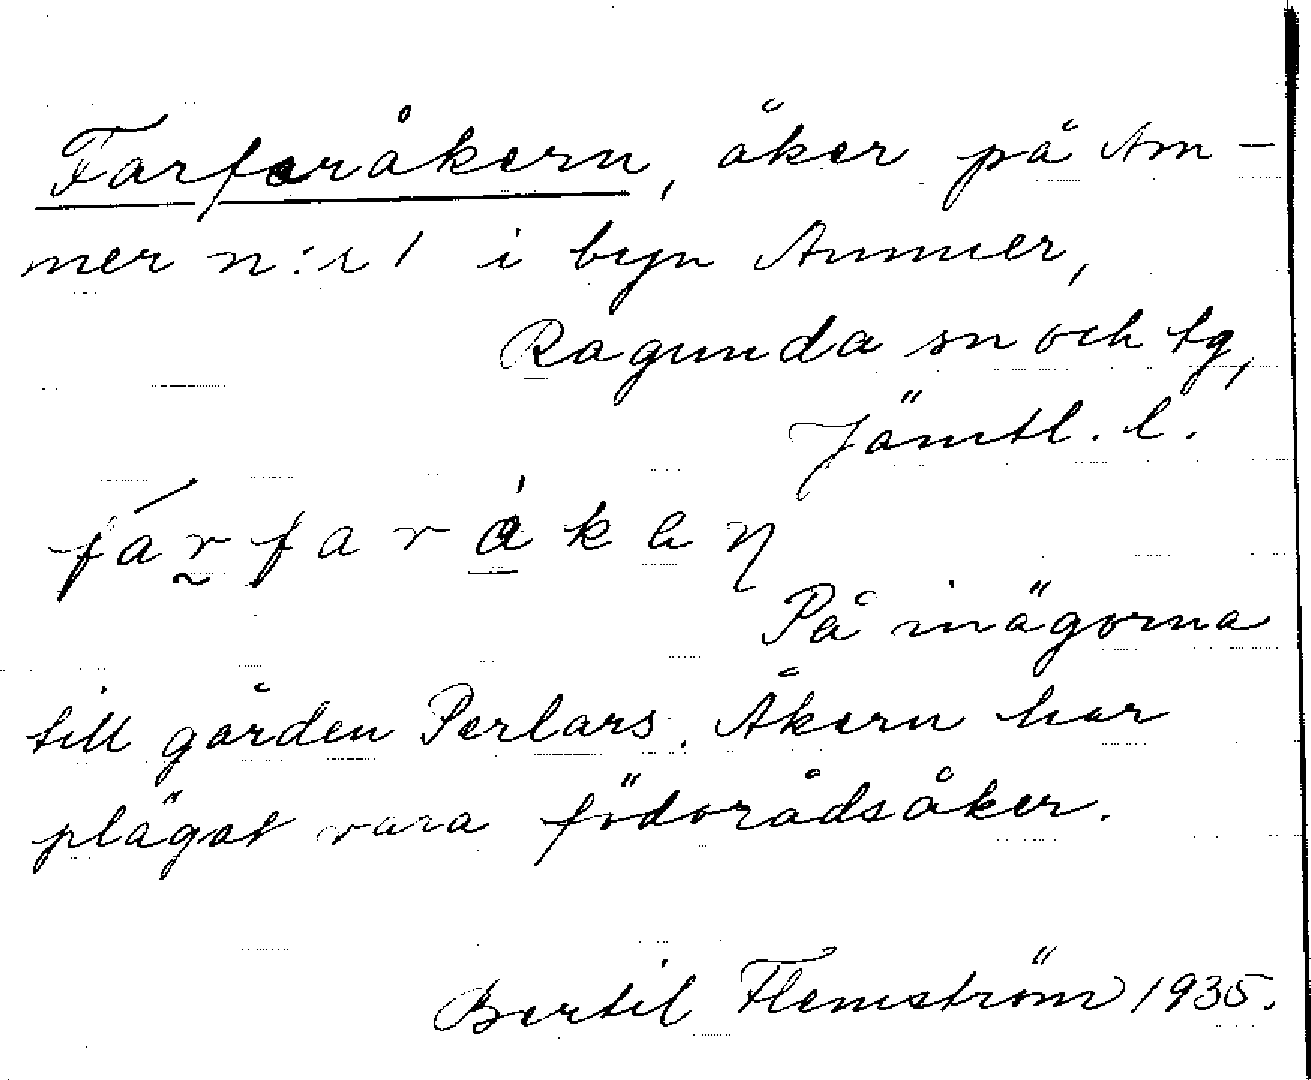 Farfaråkern, åker på Am-
mer n:r 1 i byn Ammer,
Ragunda sn och tg,
Jämtl. l.
fárfaràkan
På inägorna
till gården Perlars. Åkern har
plägat vara födorådsåker.
Bertil Flemström 1935.